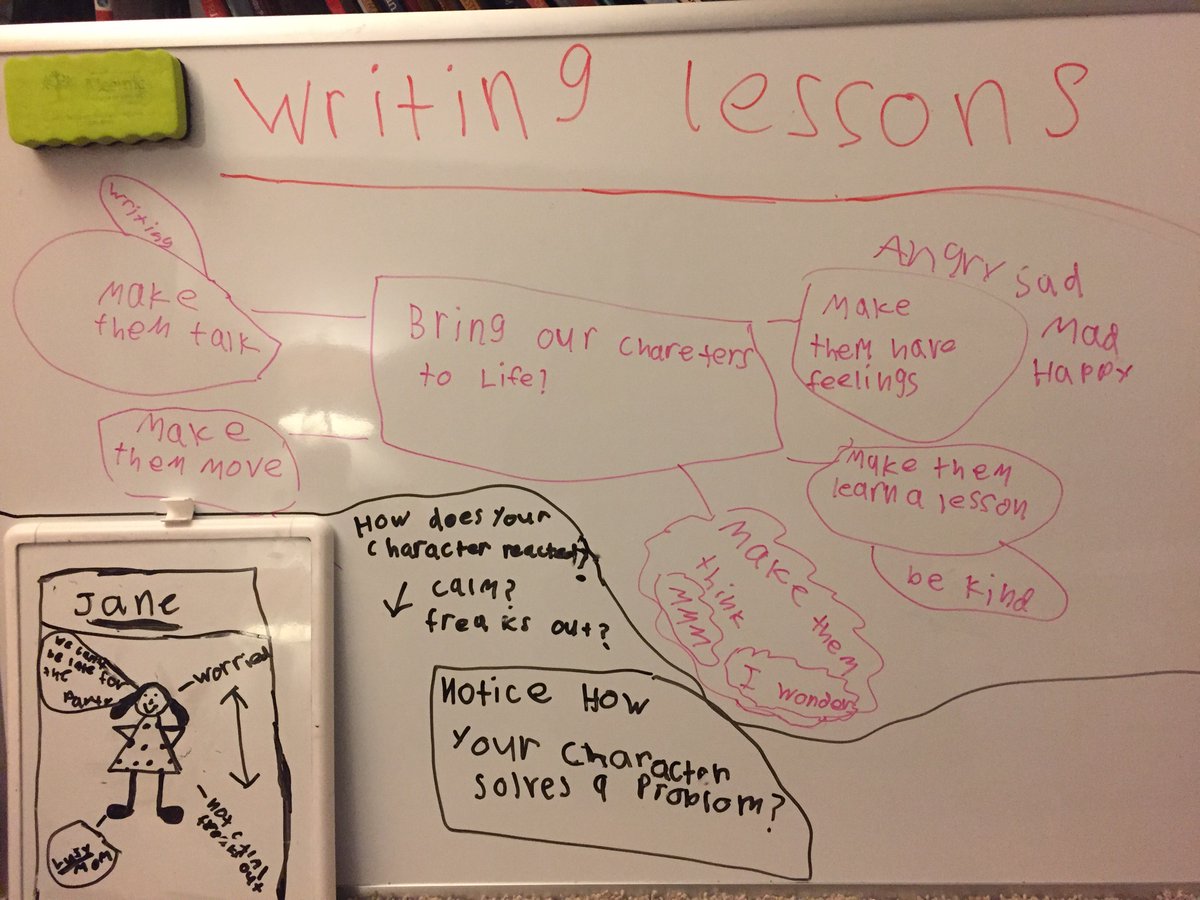 writing lessons
writing
Make
them talk
Make
them move
Bring our chareters
to Life?
Angry sad
Mad
Happy
Make
them have
feelings
Make them
learn a lesson
be kind
Make them
think
MMM
I wonder
How does your
character reacted?
calm?
freaks out?
Notice How
your character
solves a problom?
Jane
we can't
be late for
the
party
worried
out
Mom